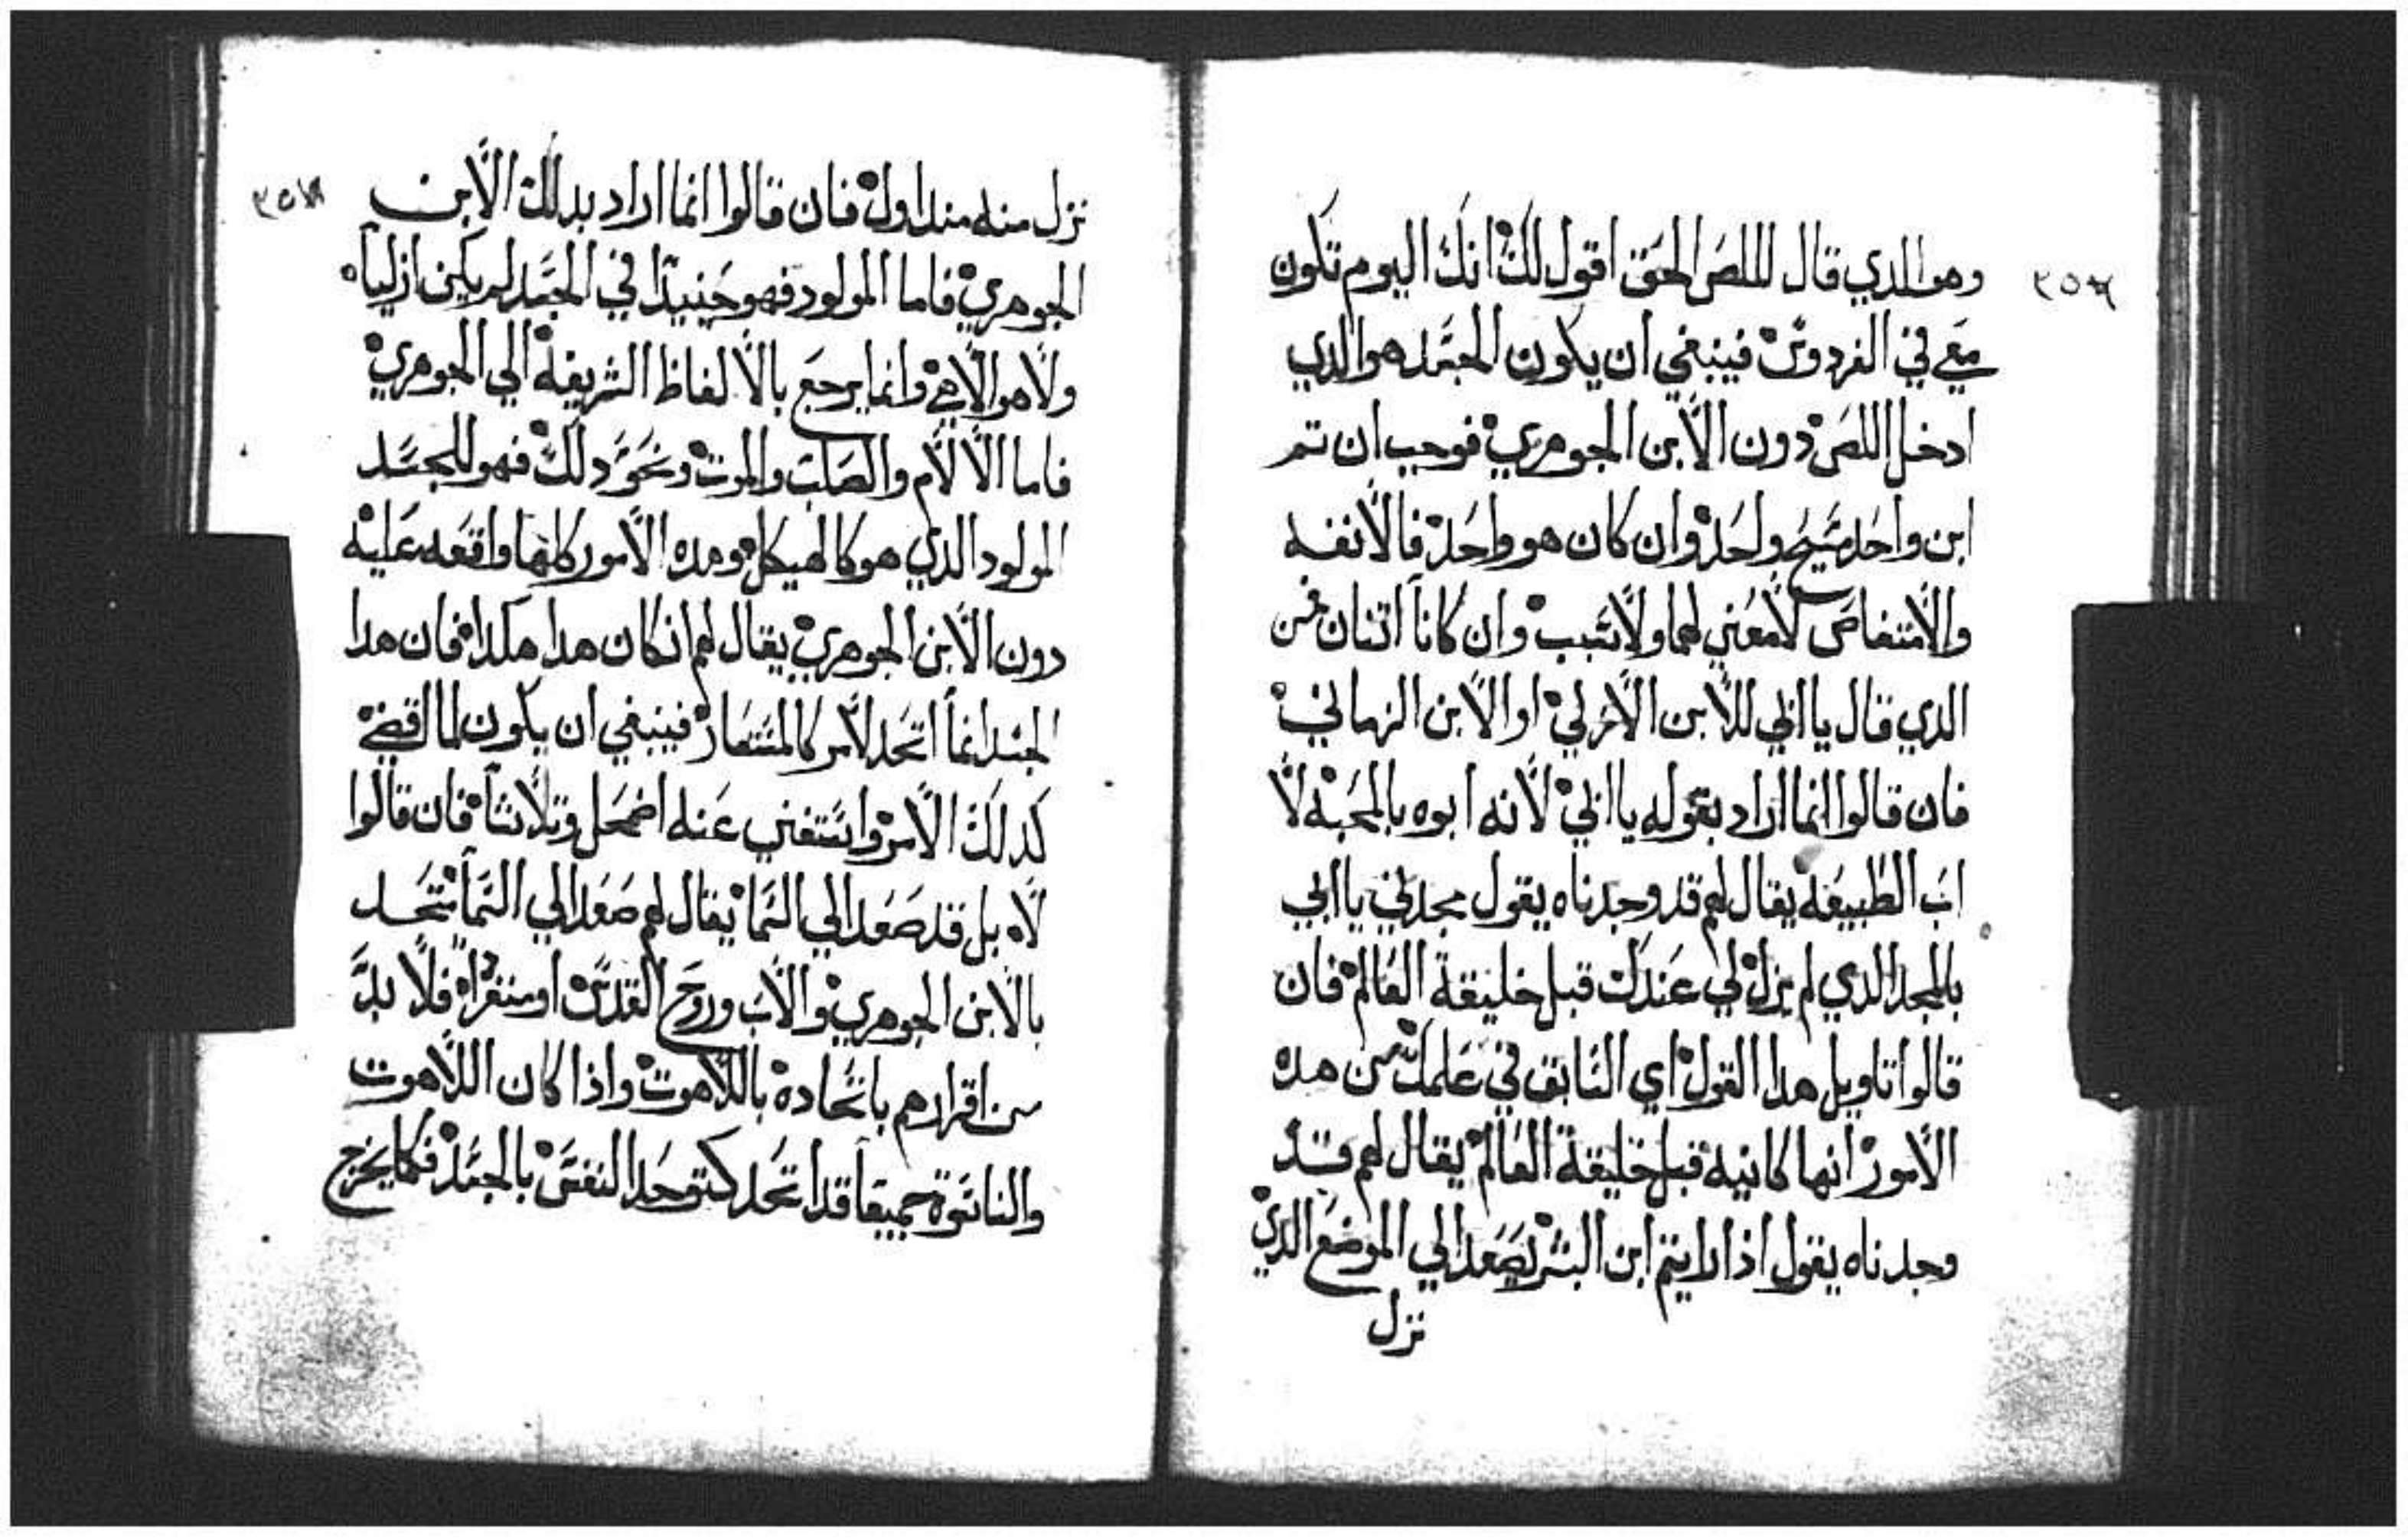 وهو الدي قال للص الحق اقول لك انك اليوم تكون
معي في الفردوس فينبغي ان يكون الجسد هو الدي
ادخل اللص دون الابن الجوهري فوجب ان تم
ابن واحد مسيح واحد وان كان هو واحد فالانفه
والامتعاص لا معني لهما ولا سبب وان كانا اتنان فمن
الدي قال يا ابي للابن الازلي او الابن الزماني
فان قالوا انما اراد بقوله يا ابي لانه ابوه بالمحبه لا
اب الطبيعه يقال لهم قد وجدناه يقول مجدني يا ابي
بالمجد الدي لم يزل لي عندك قبل خليقة العالم فان
قالوا تاويل هدا القول اي السابق في علمك من هده
الامور انها كانيه قبل خليقة العالم يقال لهم قد
وجدناه يقول اذا رايتم ابن البشر يصعد الي الموضع الدي
نزل
نزل منه مند اول فان قالوا انما اراد بدلك الابن
الجوهري فاما المولود فهو حينيدا في الجسد لم يكن ازليا
ولا هو الاهي وانما يرجع بالالفاظ الشريفه الي الجوهري
فاما الالام والصلب والموت ونحو دلك فهو للجسد
المولود الدي هو كالهيكل وهده الامور كلها واقعه عليه
دون الابن الجوهري يقال لهم ان كان هدا هكدا فان هدا
الجسد انما اتحد لامر كالمستعار فينبغي ان يكون لما انقضي
كدلك الامر واستغني عنه اضمحل وتلاشا فان قالوا
لا بل قد صعد الي السما يقال لهم صعد الي السما متحد
بالابن الجوهري والاب وروح القدس او منفردا فلا بد
من اقرارهم باتحاده باللاهوت واذا كان اللاهوت
والناسوة جميعا قد اتحد كتوحد النفس بالجسد فكما يخرج